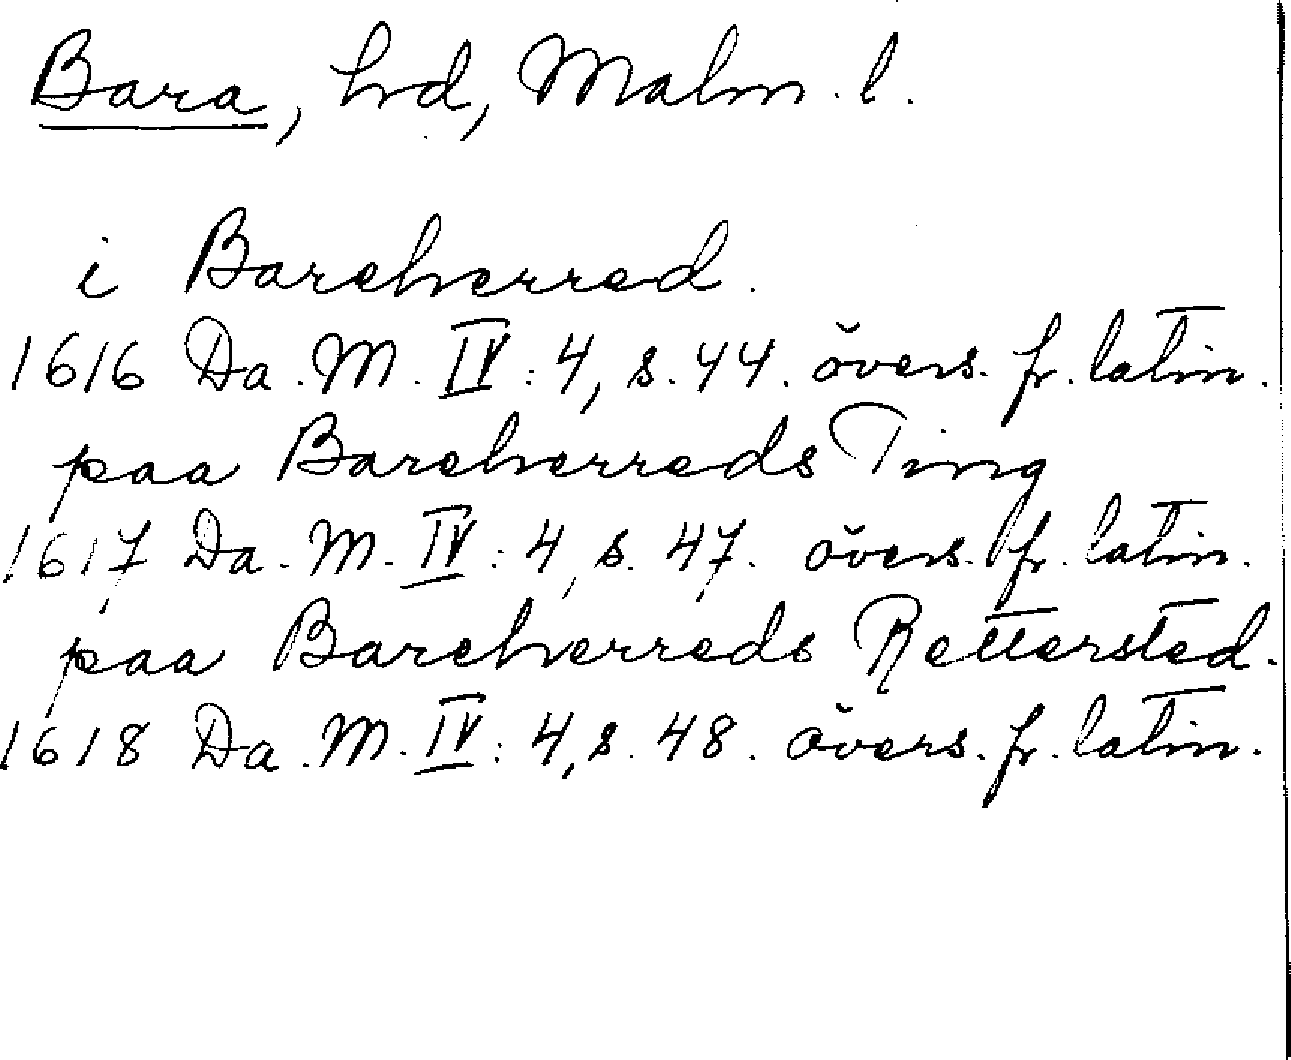 Bara, hrd, Malm. l.
i Bareherred.
1616 Da. M. IV: 4, s. 44. övers. fr. latin.
paa Bareherreds Ting
1617 Da. M. IV: 4, s. 47. övers. fr. latin.
paa Bareherreds Rettersted.
1618 Da. M. IV: 4, s. 48. övers. fr. latin.